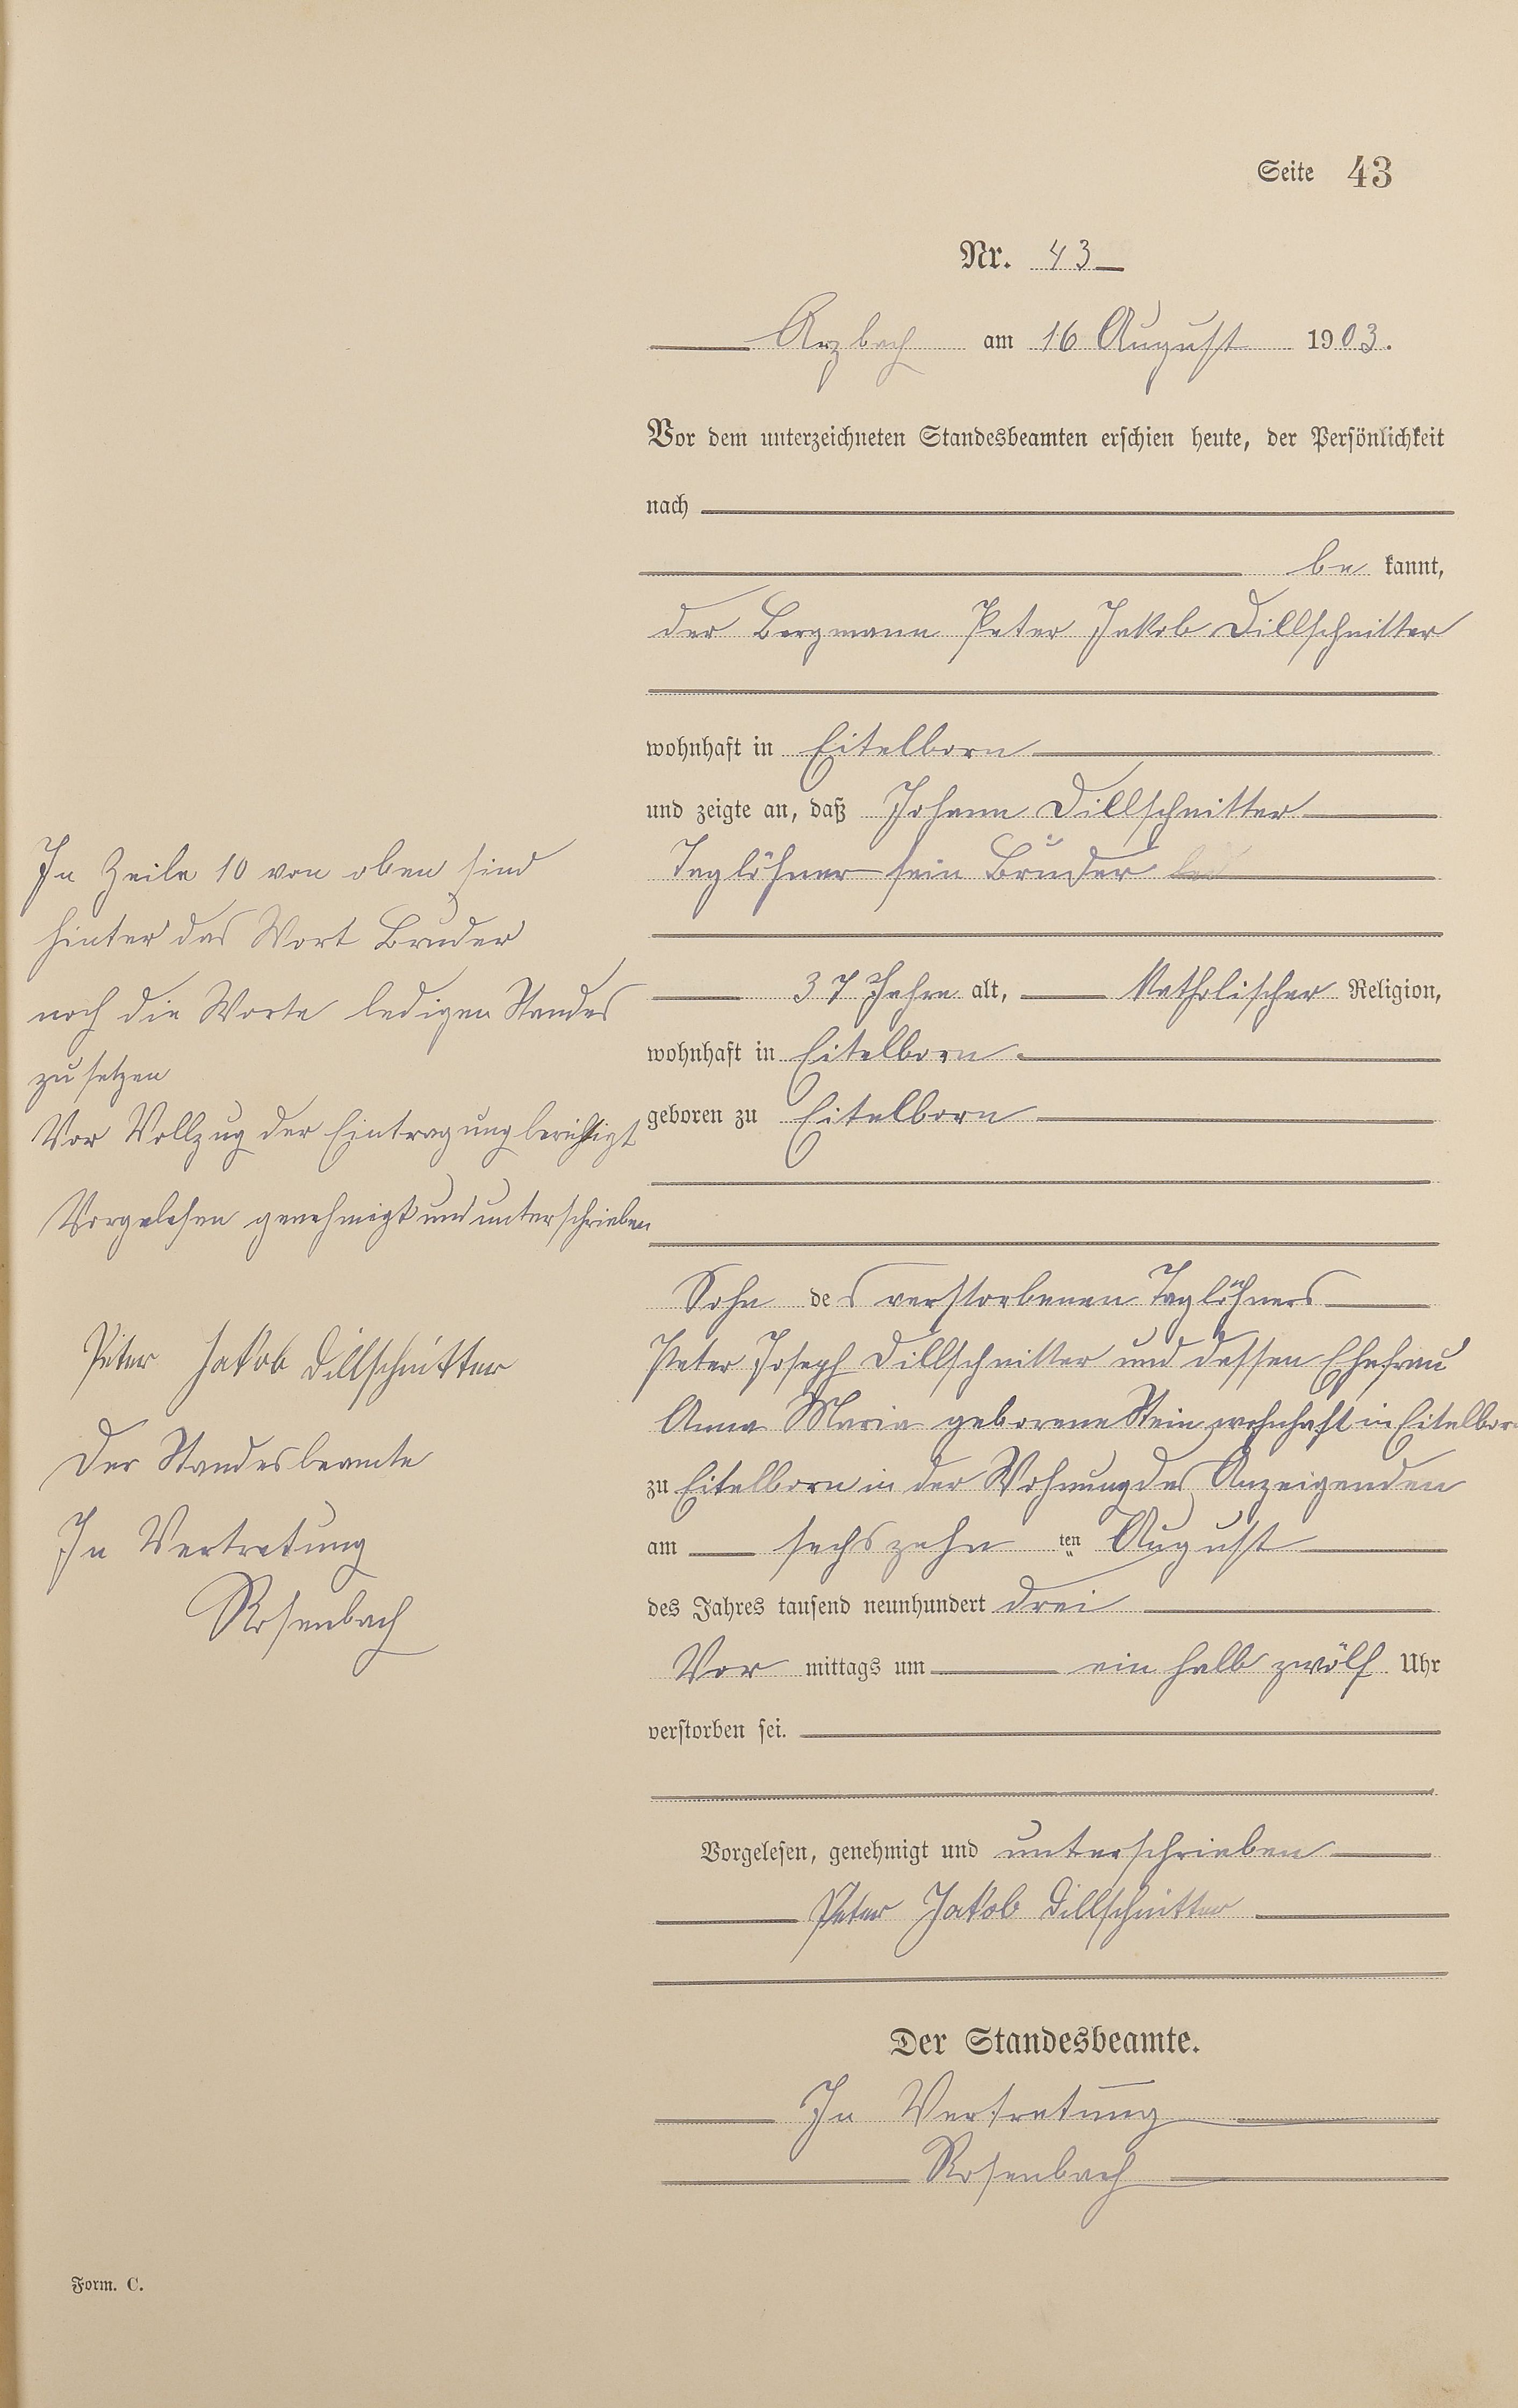 Seite 43
Nr. 43
Arzbach am 16 August 1903.
Vor dem unterzeichneten Standesbeamten erschien heute, der Persönlichkeit
nach
be kannt,
der Bergmann Peter Jakob Dillschnitter
wohnhaft in Eitelborn
und zeigte an, daß Johann Dillschnitter
Taglöhner sein Bruder
37 Jahre alt, Katholischer Religion,
wohnhaft in Eitelborn
geboren zu Eitelborn
Sohn des verstorbenen Taglöhners
Peter Joseph Dillschnitter und dessen Ehefrau
Anna Maria geborene Stein wohnhaft in Eitelborn
zu Eitelborn in der Wohnung des Anzeigenden
am sechszehn ten August
des Jahres tausend neunhundert drei
Vor mittags um ein halb zwölf Uhr
verstorben sei.
Vorgelesen, genehmigt und unterschrieben
Peter Jakob Dillschnitter
Der Standesbeamte.
In Vertretung
Rosenbach
In Zeile 10 von oben sind
hinter das Wort Bruder
noch die Worte ledigen Standes
zu setzen
Vor Vollzug der Eintragung berichtigt
Vorgelesen genehmigt und unterschrieben
Peter Jakob Dillschnitter
Der Standesbeamte
In Vertretung
Rosenbach
Form. C.